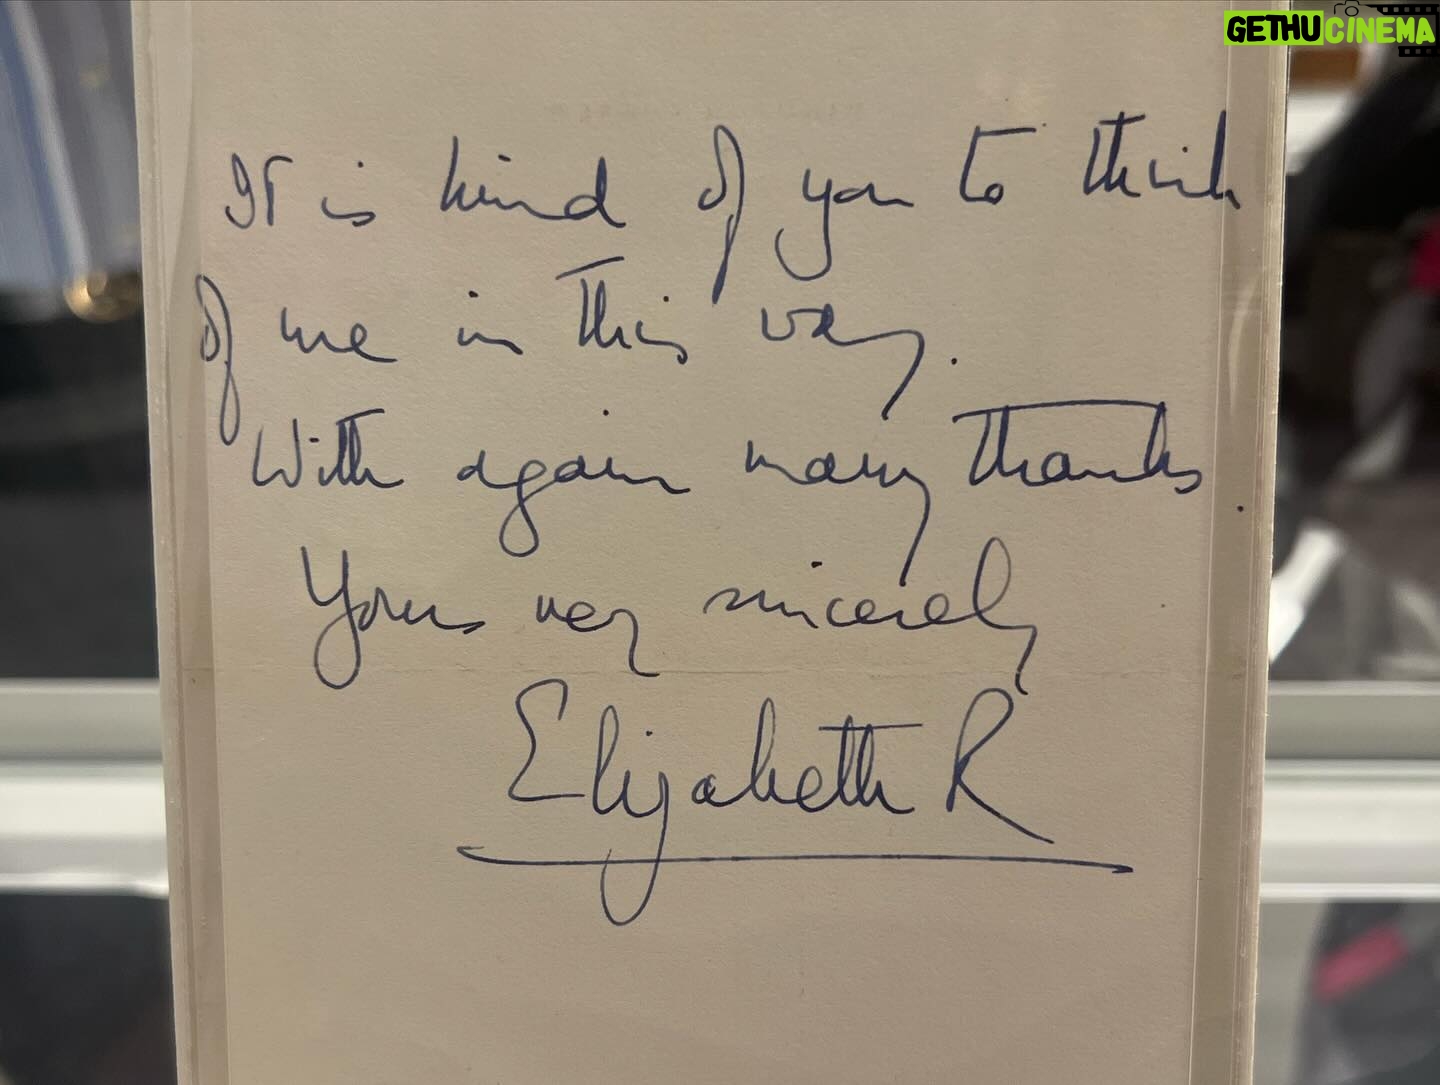 GETHU CINEMA
It is kind of you to think
of me in this way.
With again many thanks.
Yours very sincerely
Elizabeth R